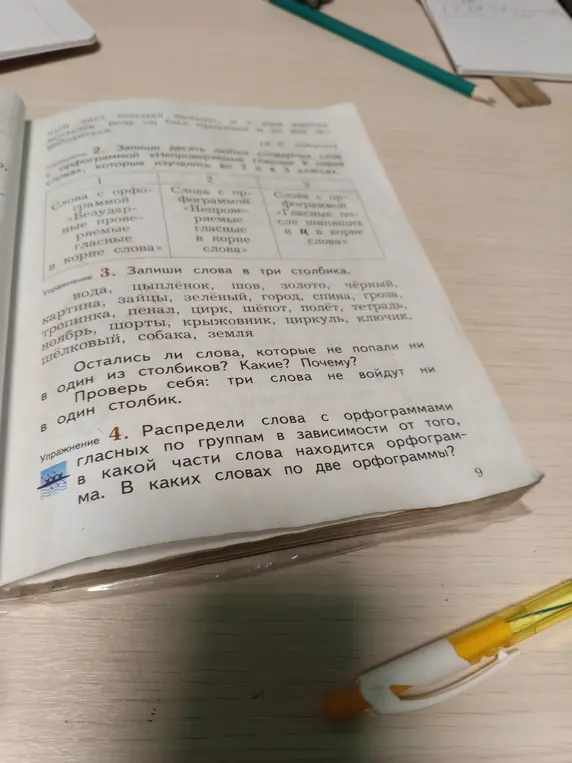 ный лист
Упражнение 2. Запиши десять любых словарных слов
с орфограммой «Непроверяемые гласные в корне
слова», которые изучались во 2 и в 3 классах.
1 2 3
Слова с орфо- Слова с ор- Слова с ор-
граммой фограммой фограммой
«Безудар- «Непрове- «Гласные по-
ные прове- ряемые сле шипящих
ряемые гласные и ц в корне
гласные в корне слова»
в корне слова» слова»
Упражнение 3. Запиши слова в три столбика.
вода, цыплёнок, шов, золото, чёрный,
картина, зайцы, зелёный, город, спина, гроза,
тропинка, пенал, цирк, шёпот, полёт, тетрадь,
ноябрь, шорты, крыжовник, циркуль, ключик,
шёлковый, собака, земля
Остались ли слова, которые не попали ни
в один из столбиков? Какие? Почему?
Проверь себя: три слова не войдут ни
в один столбик.
Упражнение 4. Распредели слова с орфограммами
гласных по группам в зависимости от того,
в какой части слова находится орфограм-
ма. В каких словах по две орфограммы?
9